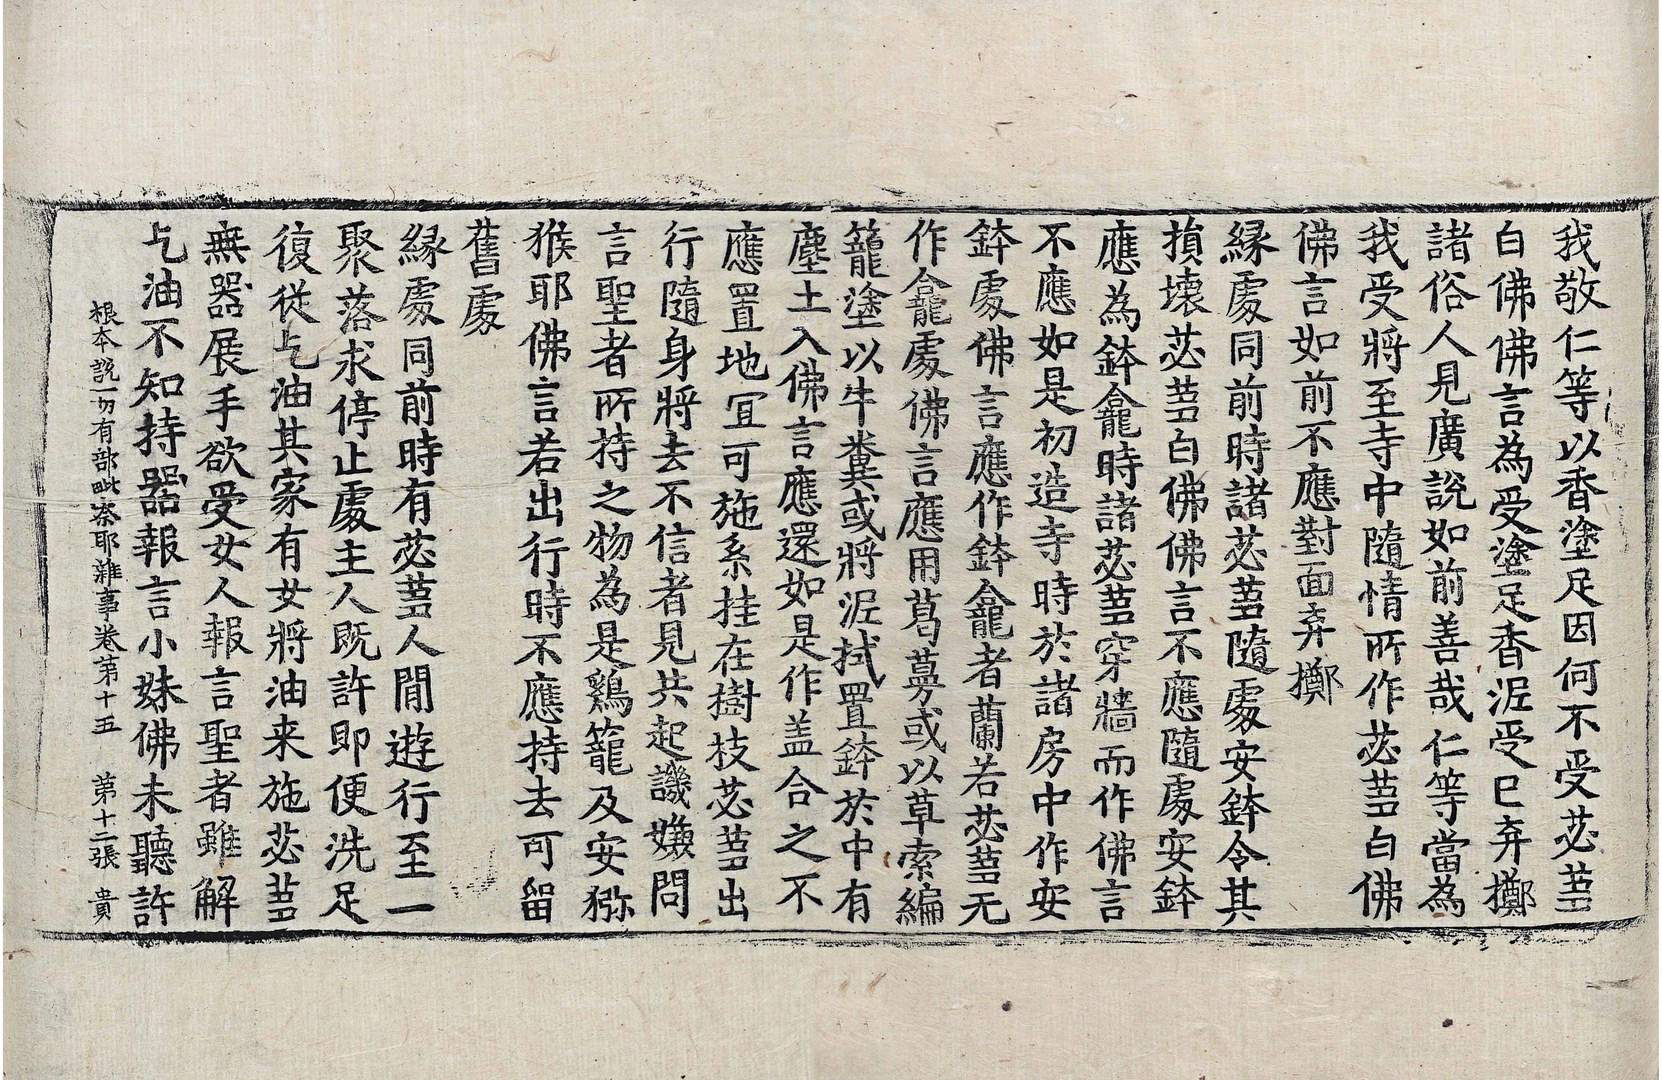 我敬仁等以香塗足因何不受苾芻
白佛佛言為受塗足香泥受已弃擲
諸俗人見廣說如前善哉仁等當為
我受將至寺中隨情所作苾芻白佛
佛言如前不應對面弃擲
緣處同前時諸苾芻隨處安鉢令其
損壞苾芻白佛佛言不應隨處安鉢
應為鉢龕時諸苾芻穿牆而作佛言
不應如是初造寺時於諸房中作安
鉢處佛言應作鉢龕者蘭若苾芻无
作龕處佛言應用葛蔓或以草索編
籠塗以牛糞或將泥拭置鉢於中有
塵土入佛言應還如是作盖合之不
應置地宜可施系挂在樹枝苾芻出
行隨身將去不信者見共起譏嫌問
言聖者所持之物為是鷄籠及安獼
猴耶佛言若出行時不應持去可留
舊處
緣處同前時有苾芻人間遊行至一
聚落求停止處主人既許即便洗足
復從乞油其家有女將油来施苾芻
無器展手欲受女人報言聖者雖解
乞油不知持器報言小妹佛未聽許
根本說一切有部毗奈耶雜事卷第十五 第十二張 貴